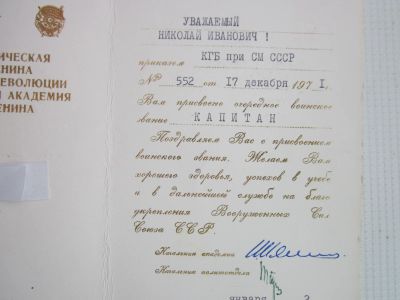 ИЧЕСКАЯ
ЕНИНА
ЕВОЛЮЦИИ
Я АКАДЕМИЯ
ЕНИНА
УВАЖАЕМЫЙ
НИКОЛАЙ ИВАНОВИЧ !
приказом КГБ при СМ СССР
№ 552 от 17 декабря 197 1.
Вам присвоено очередное воинское
звание КАПИТАН
Поздравляем Вас с присвоением
воинского звания. Желаем Вам
хорошего здоровья, успехов в учебе
и в дальнейшей службе на благо
укрепления Вооруженных Сил
Союза ССР.
Начальник академии
Начальник политотдела
января